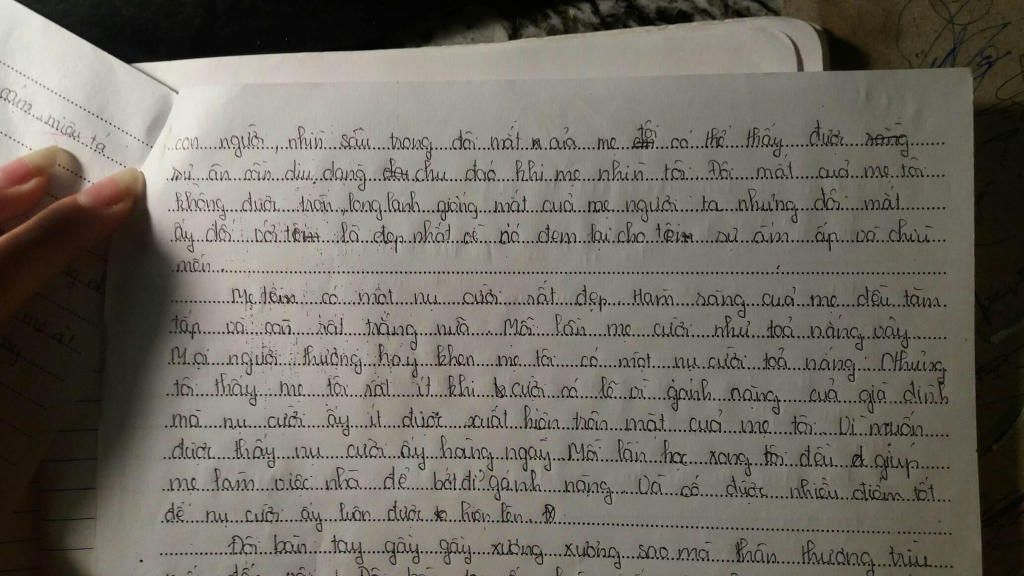 cảm miêu tả
con người, nhìn sâu trong đôi mắt của mẹ tôi có thể thấy được
sự ân cần dịu dàng chu đáo khi mẹ nhìn tôi. Đôi mắt cuả mẹ tôi
không được tròn, long lanh giống mắt cuả mẹ người ta nhưng đôi mắt
ấy đối với tôi là đẹp nhất vì nó đem lại cho tôi sự ấm áp và chìu
mến.
Mẹ tôi có một nụ cười rất đẹp. Hàm răng cuả mẹ đều tăm
tắp và còn rất trắng nữa. Mỗi lần mẹ cười như toả nắng vậy.
Mọi người thường hay khen mẹ tôi có một nụ cười toả nắng. Nhưng
tôi thấy mẹ tôi rất ít khi cười có lẽ vì gánh nặng cuả gia đình
mà nụ cười ấy ít được xuất hiện trên mặt cuả mẹ tôi. Vì muốn
được thấy nụ cười ấy hàng ngày. Mỗi lần học xong tôi đều giúp
mẹ làm việc nhà để bớt đi gánh nặng. Và có được nhiều điểm tốt
để nụ cười ấy luôn được hiện lên.
Đôi bàn tay gầy gầy xương xương sao mà thân thương trìu